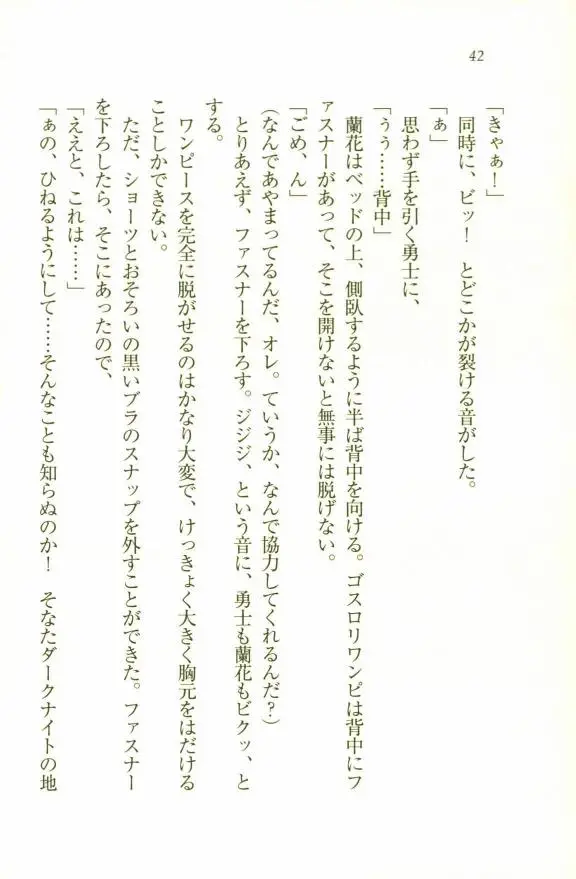 42
「きゃぁ！」
同時に、ビッ！　とどこかが裂ける音がした。
「ぁ」
思わず手を引く勇士に、
「ぅぅ……背中」
蘭花はベッドの上、側臥するように半ば背中を向ける。ゴスロリワンピは背中にフ
ァスナーがあって、そこを開けないと無事には脱げない。
「ごめ、ん」
（なんであやまってるんだ、オレ。ていうか、なんで協力してくれるんだ？）
とりあえず、ファスナーを下ろす。ジジジ、という音に、勇士も蘭花もビクッ、と
する。
ワンピースを完全に脱がせるのはかなり大変で、けっきょく大きく胸元をはだける
ことしかできない。
ただ、ショーツとおそろいの黒いブラのスナップを外すことができた。ファスナー
を下ろしたら、そこにあったので、
「ええと、これは……」
「ぁの、ひねるようにして……そんなことも知らぬのか！　そなたダークナイトの地